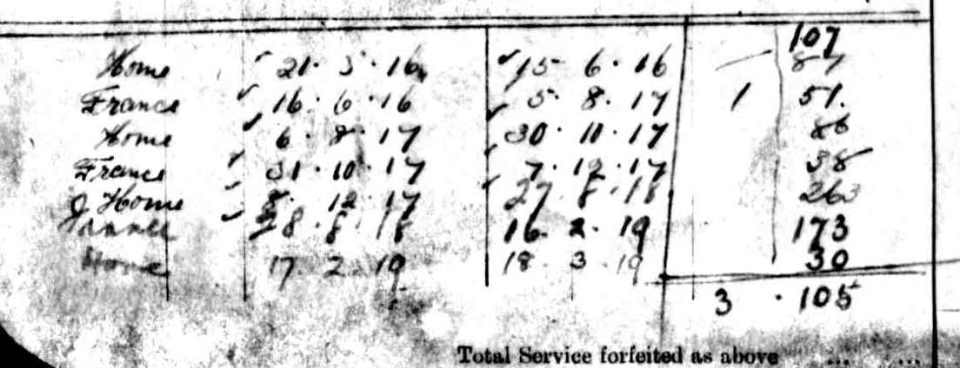 107
Home 21 · 3 · 16 15 6 · 16 87
France 16 · 6 · 16 5 · 8 · 17 1 51.
Home 6 · 8 · 17 30 · 11 · 17 86
France 31 · 10 · 17 7 · 12 · 17 38
Home 8 · 12 · 17 27 · 8 · 18 263
France 28 · 8 · 18 16 · 2 · 19 173
Home 17 · 2 · 19 18 · 3 · 19 30
3 · 105
Total Service forfeited as above ... ...